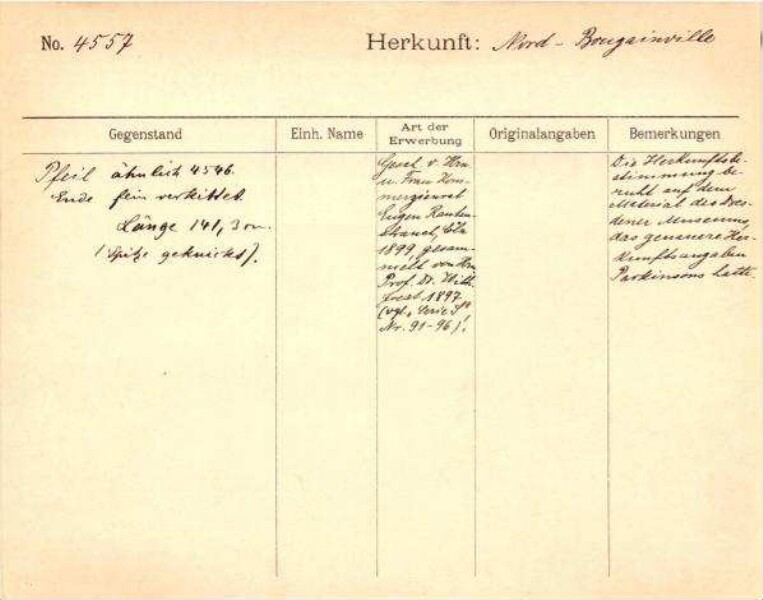 No. 4557 Herkunft: Nord-Bougainville
Gegenstand
Einh. Name
Art der
Erwerbung
Originalangaben
Bemerkungen
Pfeil ähnlich 4546.
Ende fein verkittet.
Länge 141,3 cm.
(Spitze geknickt).
Gesch. v. Hrn
u. Frau Kom-
merzienrat
Eugen Rauten-
strauch, Cöln
1899, gesam-
melt von Hrn
Prof. Dr. Wilh.
Joest 1897
(vgl. Serie I
Nr. 91-96)!
Die Herkunftsbe-
stimmung be-
ruht auf dem
Material des Dres-
dener Museums,
das genauere Her-
kunftsangaben
Parkinsons hatte.